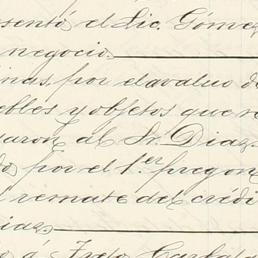 sentó el Lic. Gómez
negocio.
inas por el avaluo d
ebles y objetos que
garon al Sr. Diaz.
do por el 1.er pregon
l remate del crédi
ias
o á Fredo Carba